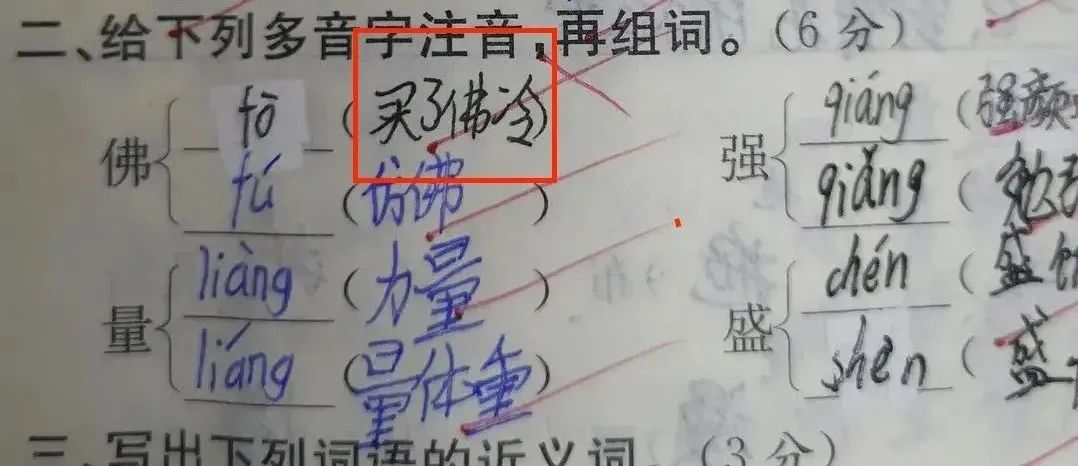 二、给下列多音字注音,再组词。(6分)
佛 fō (买了佛冷)
fú (仿佛)
量 liàng (力量)
liáng (量体重)
强 qiáng (强颜
qiǎng (勉
盛 chén (盛
shèn (盛
三、写出下列词语的近义词。(3分)